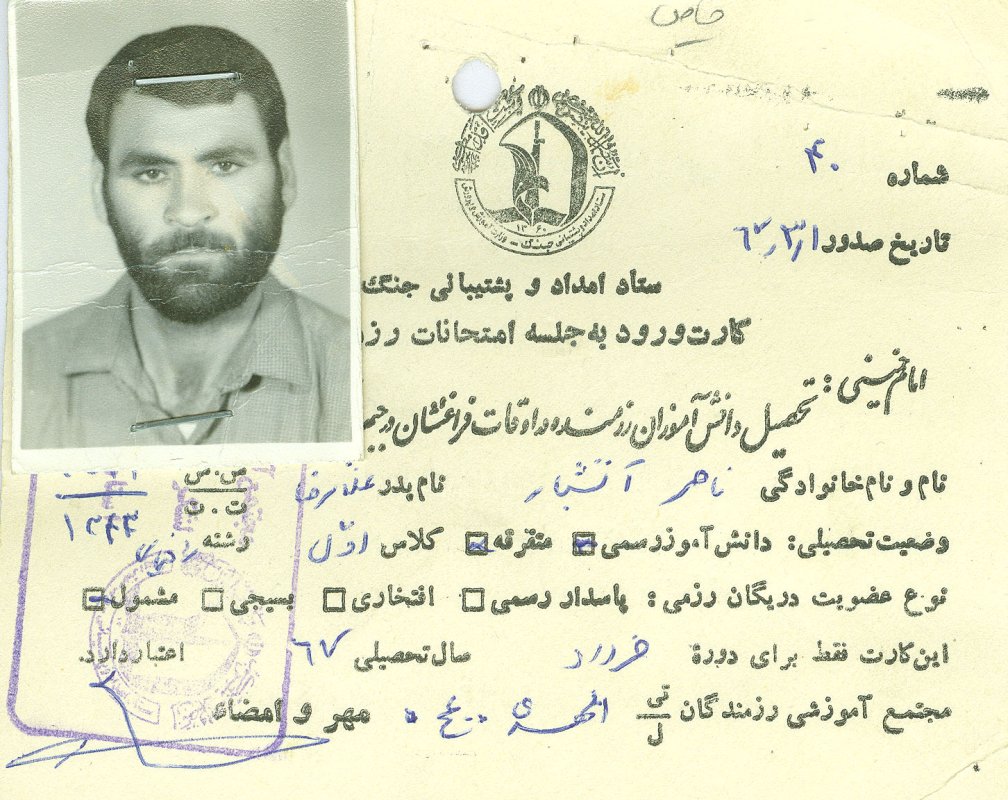 خاص
شماره ۴۰
تاریخ صدور
ستاد امداد و پشتیبانی جنگ
۱۳۶۰
ستاد امداد و پشتیبانی جنگ - وزارت آموزش و پرورش
کارت ورود به جلسه امتحانات رز
امام خمینی:
تحصیل دانش‌آموزان رزمنده و اوقات فراغتشان در جبهه
نام و نام خانوادگی ناصر آتشبار نام پدر غلامرضا ش.ش
ت.ت ۱۳۴۳
وضعیت تحصیلی: دانش‌آموز رسمی متفرقه کلاس اول رشته
نوع عضویت در یگان رزمی: پاسدار رسمی افتخاری بسیجی مشمول
این کارت فقط برای دورهٔ خرداد سال تحصیلی ۶۷ اعتبار دارد.
مجتمع آموزشی رزمندگان تی/ل المهدی مهر و امضاء